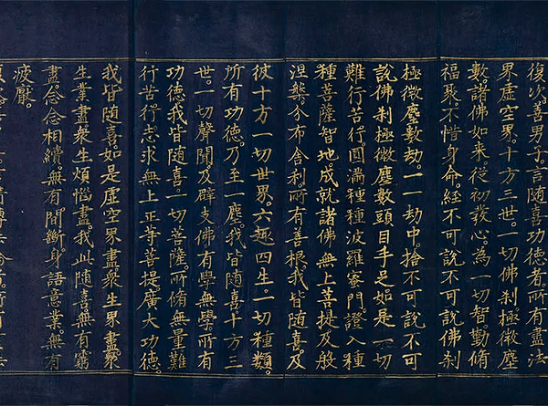 復次。善男子。言隨喜功德者。所有盡法
界虛空界。十方三世。一切佛剎極微塵
數諸佛如來。從初發心。為一切智。勤脩
福聚。不惜身命。經不可說不可說佛剎
極微塵數劫。一一劫中。捨不可說不可
說佛剎極微塵數頭目手足。如是一切
難行苦行。圓滿種種波羅蜜門。證入種
種菩薩智地。成就諸佛無上菩提。及般
涅槃。分布舍利。所有善根。我皆隨喜。及
彼十方一切世界。六趣四生。一切種類。
所有功德。乃至一塵。我皆隨喜。十方三
世。一切聲聞。及辟支佛。有學無學。所有
功德。我皆隨喜。一切菩薩。所脩無量難
行苦行。志求無上正等菩提。廣大功德。
我皆隨喜。如是虛空界盡。衆生界盡。衆
生業盡。衆生煩惱盡。我此隨喜。無有窮
盡。念念相續。無有間斷。身語意業。無有
疲厭。